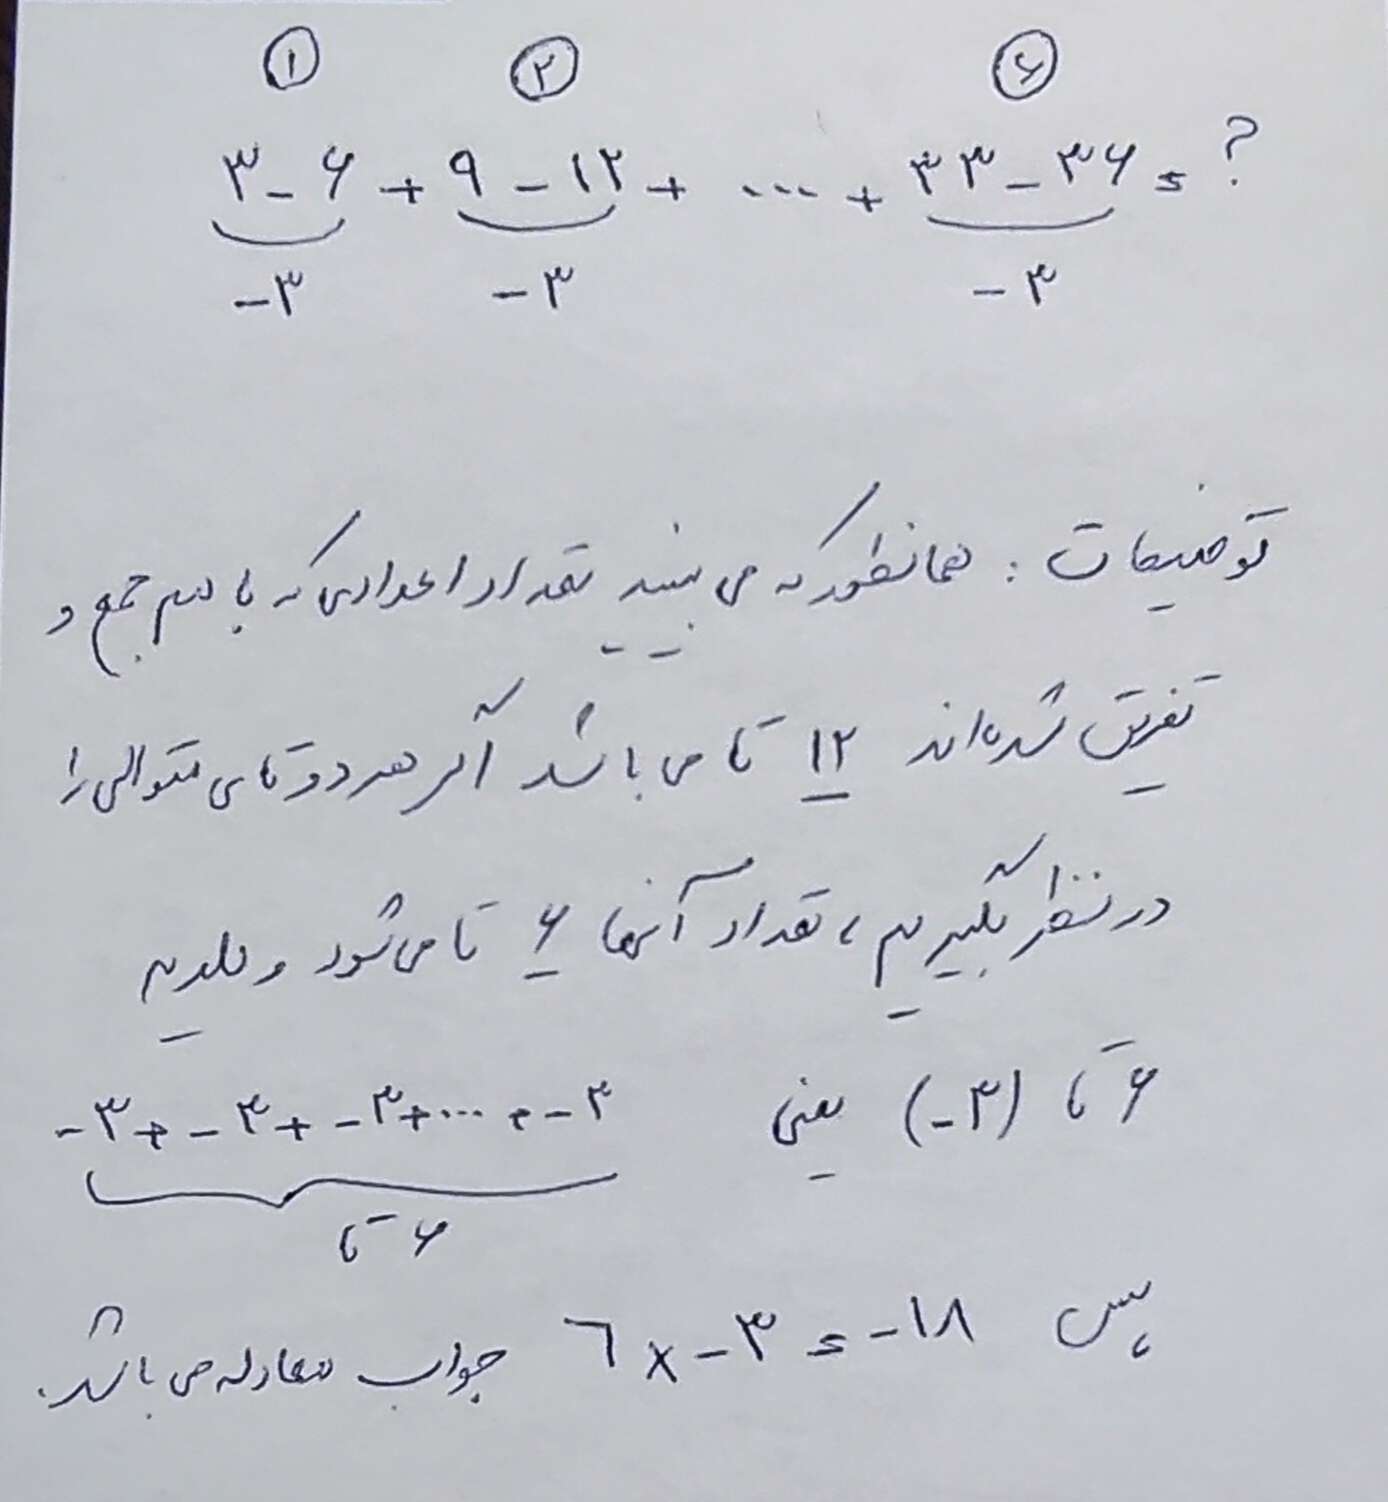 ۱ ۲ ۶
۳ - ۶ + ۹ - ۱۲ + ... + ۳۳ - ۳۶ = ?
-۳ -۳ -۳
توضیحات : همانطور که می بینید تعداد اعدادی که با هم جمع و
تفریق شده‌اند ۱۲ تا می باشد اگر هر دو تای متوالی را
در نظر بگیریم ، تعداد آنها ۶ تا می شود و
۶ تا (-۳) یعنی -۳ + -۳ + -۳ + ... + -۳
۶ تا
پس ۶ × -۳ = -۱۸ جواب معادله می باشد.